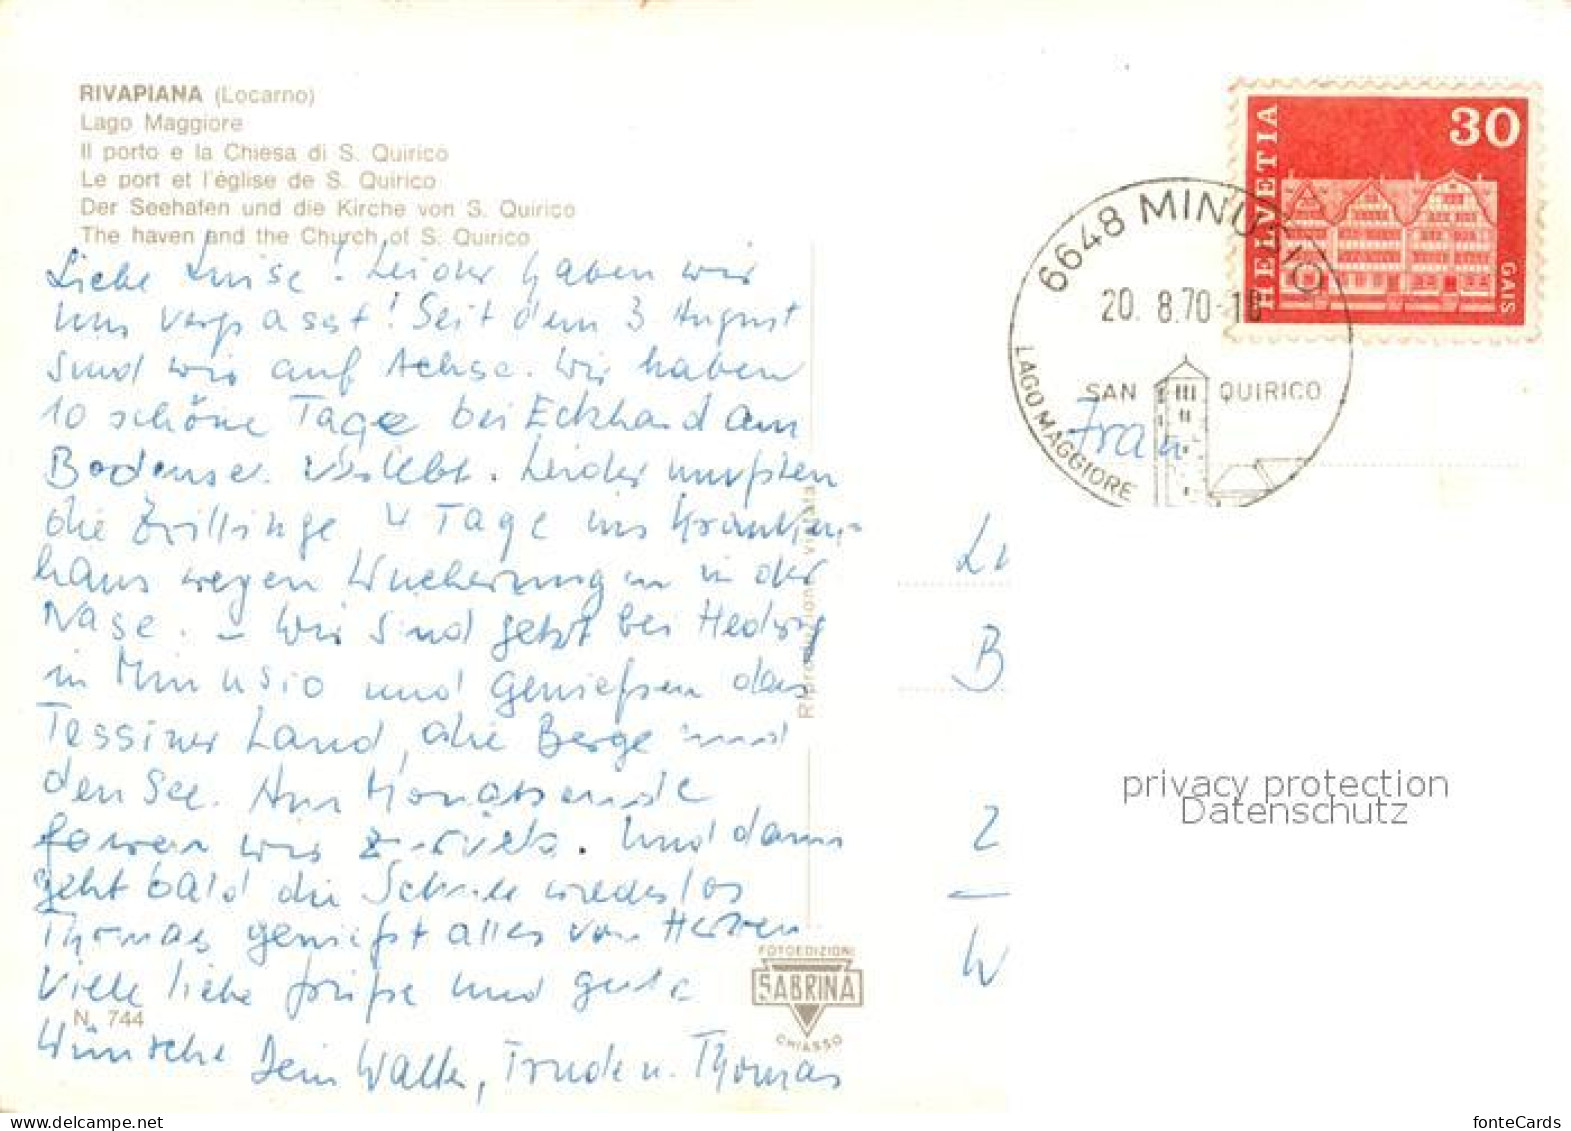 RIVAPIANA (Locarno)
Lago Maggiore
Il porto e la Chiesa di S. Quirico
Le port et l'église de S. Quirico
Der Seehafen und die Kirche von S. Quirico
The haven and the Church of S. Quirico
Liebe Luise! Leider haben wir
uns verpasst! Seit dem 3 August
sind wir auf Achse. Wir haben
10 schöne Tage bei Eckhard am
Bodensee verlebt. Leider mußten
die Zwillinge 4 Tage ins Kranken-
haus wegen Wucherungen in der
Nase. – Wir sind jetzt bei Hedwig
in Minusio und genießen das
Tessiner Land, die Berge und
den See. Am Monatsende
fahren wir zurück. Und dann
geht bald die Schule wieder los
Thomas genießt alles von Herzen
Viele liebe Grüße und gute
Wünsche Dein Walter, Trude u. Thomas
N. 744
Riproduzione vietata
FOTOEDIZIONI
SABRINA
CHIASSO
HELVETIA
30
GAIS
6648 MINUSIO
20. 8.70-18
SAN QUIRICO
LAGO MAGGIORE
Frau
B
2
W
privacy protection
Datenschutz
fonteCards